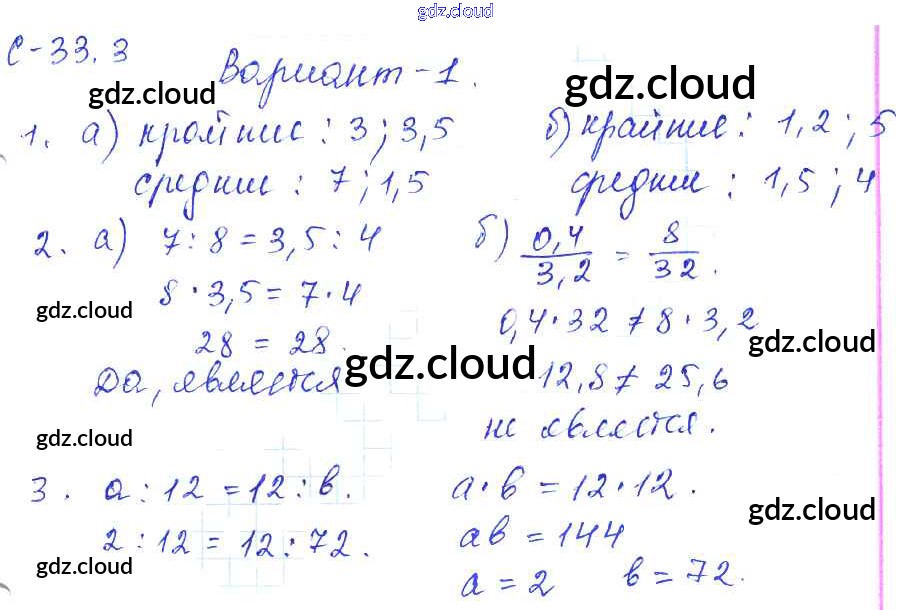 gdz.cloud
С-33.3
Вариант-1.
gdz.cloud gdz.cloud
1. а) крайние : 3 ; 3,5 б) крайние : 1,2 ; 5
средние : 7 ; 1,5 средние : 1,5 ; 4
2. а) 7 : 8 = 3,5 : 4 б) 0,4/3,2 = 8/32.
8 · 3,5 = 7 · 4
gdz.cloud 0,4 · 32 ≠ 8 · 3,2
28 = 28. gdz.cloud
Да, является gdz.cloud 12,8 ≠ 25,6
не является.
gdz.cloud
3. а : 12 = 12 : в. а · в = 12 · 12.
gdz.cloud
2 : 12 = 12 : 72. ав = 144
gdz.cloud а = 2 в = 72.